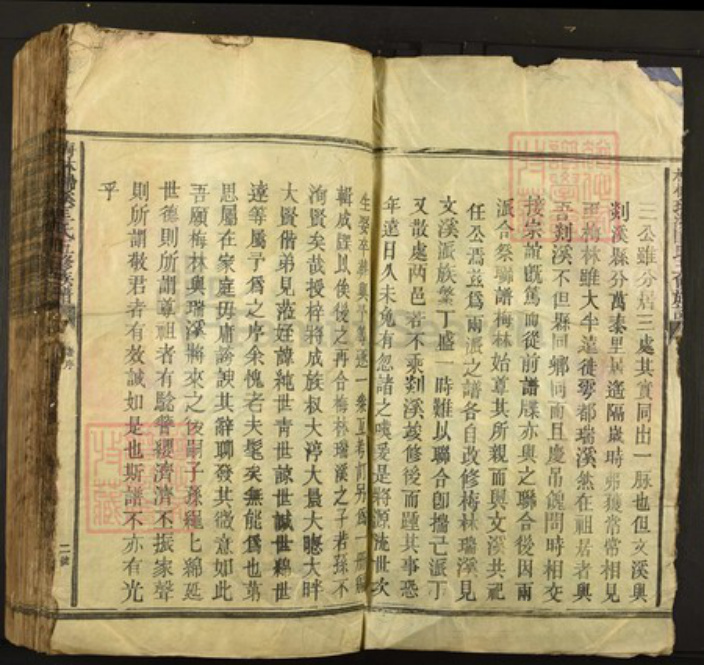 三公雖分居三處其實同出一脉也但文溪與
剡溪縣分萬泰里居遙隔歲時弗獲常常相見
而梅林雖大半遠徙雩都瑞溪然在祖居者與
吾剡溪不但縣同鄉同而且慶吊餽問時相交
接宗誼旣篤而從前譜牒亦與之聯合後因兩
派合祭聯譜梅林始尊其所親而與文溪共祀
任公焉茲爲兩派之譜各自改修梅林瑞溪見
文溪派族繁丁盛一時難以聯合卽擕亡派丁
又散處两邑若不乘剡溪竣修後而踵其事恐
年遠日久未免有忽諸之嘆爰是將源流世次
生娶卒葬與予等逐一
輯成牒以俟後之再合梅林瑞溪之子若孫不
洵賢矣哉授梓將成族叔大渟大晨大聰大畔
大賢偕弟見蒞好諱純世青世諫世誠世綿世
達等屬予爲之序余愧老夫髦矣無能爲也第
思屬在家庭毋庸諛諛其辭聊發其微意如此
吾願梅林與瑞溪將來之後嗣子孫繩上綿延
世德則所謂尊祖者有驗簪纓濟濟不振家聲
則所謂敬君者有效誠如是也斯譜不亦有光
乎
二號